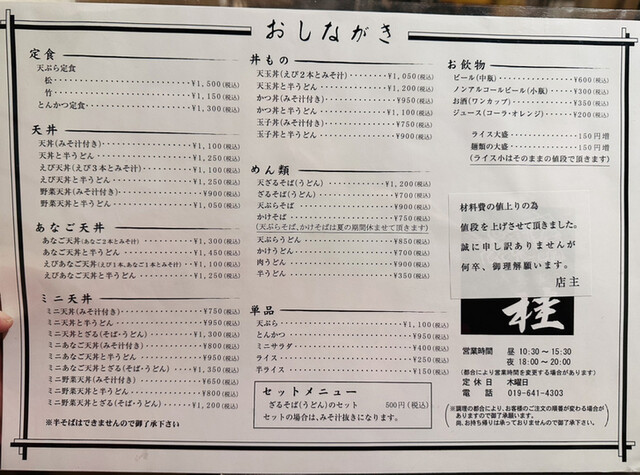 おしながき
定食
天ぷら定食
松 ¥1,500(税込)
竹 ¥1,150(税込)
とんかつ定食 ¥1,300(税込)
天丼
天丼(みそ汁付き) ¥1,100(税込)
天丼と半うどん ¥1,250(税込)
えび天丼(えび3本とみそ汁) ¥1,100(税込)
えび天丼と半うどん ¥1,250(税込)
野菜天丼(みそ汁付き) ¥900(税込)
野菜天丼と半うどん ¥1,050(税込)
あなご天丼
あなご天丼(あなご2本とみそ汁) ¥1,300(税込)
あなご天丼と半うどん ¥1,450(税込)
えびあなご天丼(えび1本、あなご1本とみそ汁) ¥1,100(税込)
えびあなご天丼と半うどん ¥1,250(税込)
ミニ天丼
ミニ天丼(みそ汁付き) ¥750(税込)
ミニ天丼と半うどん ¥950(税込)
ミニ天丼とざる(そば・うどん) ¥1,300(税込)
ミニあなご天丼(みそ汁付き) ¥800(税込)
ミニあなご天丼と半うどん ¥950(税込)
ミニあなご天丼とざる(そば・うどん) ¥1,350(税込)
ミニ野菜天丼(みそ汁付き) ¥650(税込)
ミニ野菜天丼と半うどん ¥800(税込)
ミニ野菜天丼とざる(そば・うどん) ¥1,200(税込)
※半そばはできませんので御了承下さい
丼もの
天玉丼(えび2本とみそ汁) ¥1,050(税込)
天玉丼と半うどん ¥1,200(税込)
かつ丼(みそ汁付き) ¥950(税込)
かつ丼と半うどん ¥1,100(税込)
玉子丼(みそ汁付き) ¥750(税込)
玉子丼と半うどん ¥900(税込)
めん類
天ざるそば(うどん) ¥1,200(税込)
ざるそば(うどん) ¥700(税込)
天ぷらそば ¥900(税込)
かけそば ¥750(税込)
(天ぷらそば,かけそばは夏の期間休ませて頂きます)
天ぷらうどん ¥850(税込)
かけうどん ¥700(税込)
肉うどん ¥900(税込)
半うどん ¥350(税込)
単品
天ぷら ¥1,100(税込)
とんかつ ¥950(税込)
ミニサラダ ¥400(税込)
ライス ¥250(税込)
半ライス ¥150(税込)
セットメニュー
ざるそば(うどん)のセット 500円(税込)
セットの場合は、みそ汁抜きになります。
お飲物
ビール(中瓶) ¥600(税込)
ノンアルコールビール(小瓶) ¥300(税込)
お酒(ワンカップ) ¥350(税込)
ジュース(コーラ・オレンジ) ¥200(税込)
ライス大盛 150円増
麺類の大盛 150円増
(ライス小はそのままの値段で頂きます)
材料費の値上りの為
値段を上げさせて頂きました。
誠に申し訳ありませんが
何卒、御理解願います。
店主
営業時間 昼 10:30〜15:30
夜 18:00〜20:00
(都合により営業時間を変更する場合があります)
定休日 木曜日
電話 019-641-4303
(※調理の都合により、お客様のご注文の順番が変わる場合が
ありますので御了承願います。
尚、お持ち帰りは承っておりませんので御了承下さい。)